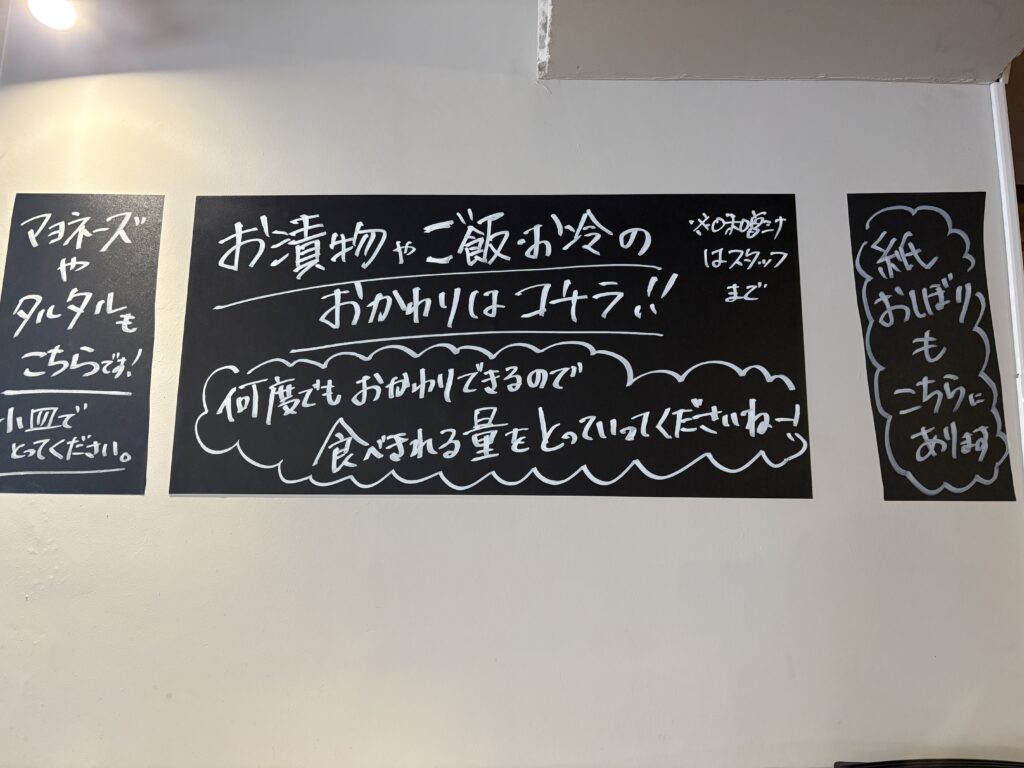 マヨネーズ
や
タルタルも
こちらです!
小皿で
とってください。
お漬物やご飯・お冷の
おかわりはコチラ!!
※味噌汁
はスタッフ
まで
何度でもおかわりできるので
食べきれる量をとっていってくださいねー!
紙
おしぼり
も
こちらに
あります